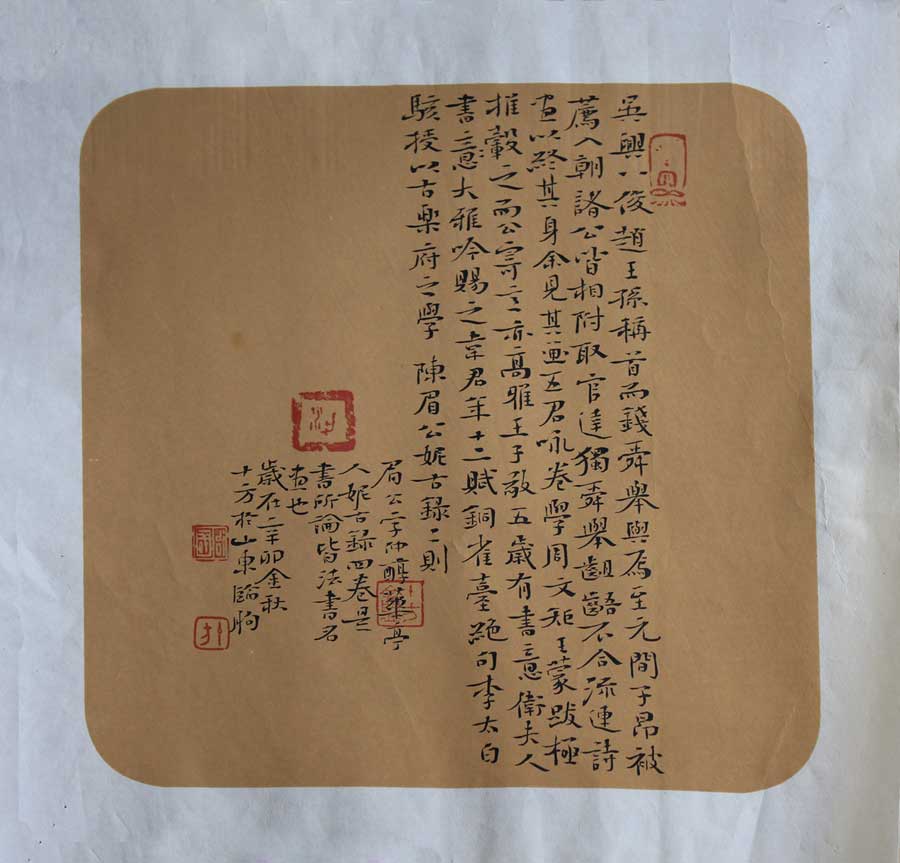 吴興八俊趙王孫稱首而錢舜舉與焉至元間子昂被
薦入朝諸公皆相附取官達獨舜舉齟齬不合流連詩
畫以終其身余見其画五君咏卷學周文矩王蒙跋極
推轂之而公寄言亦高雅王子敬五歲有書意衛夫人
書意大雅吟賜之韋君年十二賦銅雀臺絶句李太白
駭授以古樂府之學 陳眉公妮古録二則
眉公字仲醇華亭
人妮古録四卷是
書所論皆法書名
畫也
歲在辛卯金秋
十方於山東臨朐